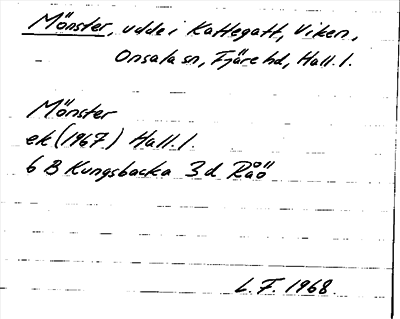 Mönster, udde i Kattegatt, Viken,
Onsala sn, Fjäre hd, Hall. l.
Mönster
ek (1967) Hall. l.
6 B Kungsbacka 3 d Råö
L. F. 1968.